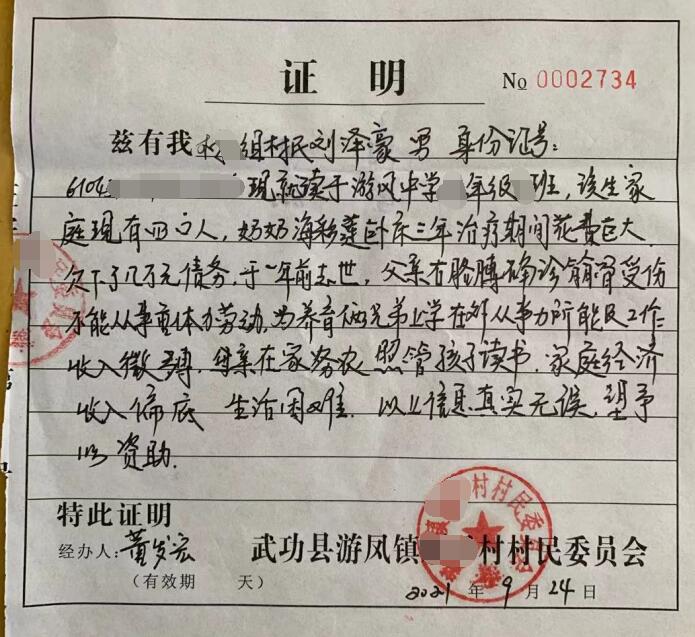 证 明
No 0002734
兹有我 组村民刘泽豪 男 身份证号:
6104 现就读于游风中学 年级 班,该生家
庭现有四口人,奶奶海 莲卧床三年治疗期间花费巨大
欠下了几万元债务,于一年前去世,父亲右胳膊确诊 骨受伤
不能从事重体力劳动,为养育俩兄弟上学在外从事力所能及工作
收入微薄,母亲在家务农 照管孩子读书,家庭经济
收入偏底 生活困难. 以上信息真实无误,望予
以资助.
特此证明
经办人:董发宏
武功县游凤镇 村村民委员会
(有效期 天)
2021 年 9 月 24 日
村村民委员会